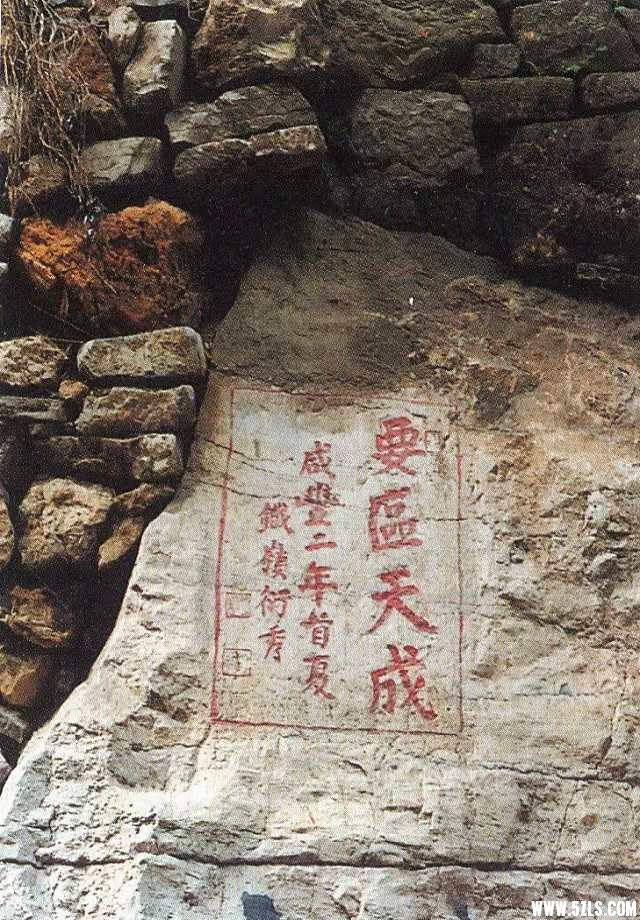 要區天成
咸豐二年首夏
鐵嶺衍秀
WWW.5ZLS.COM